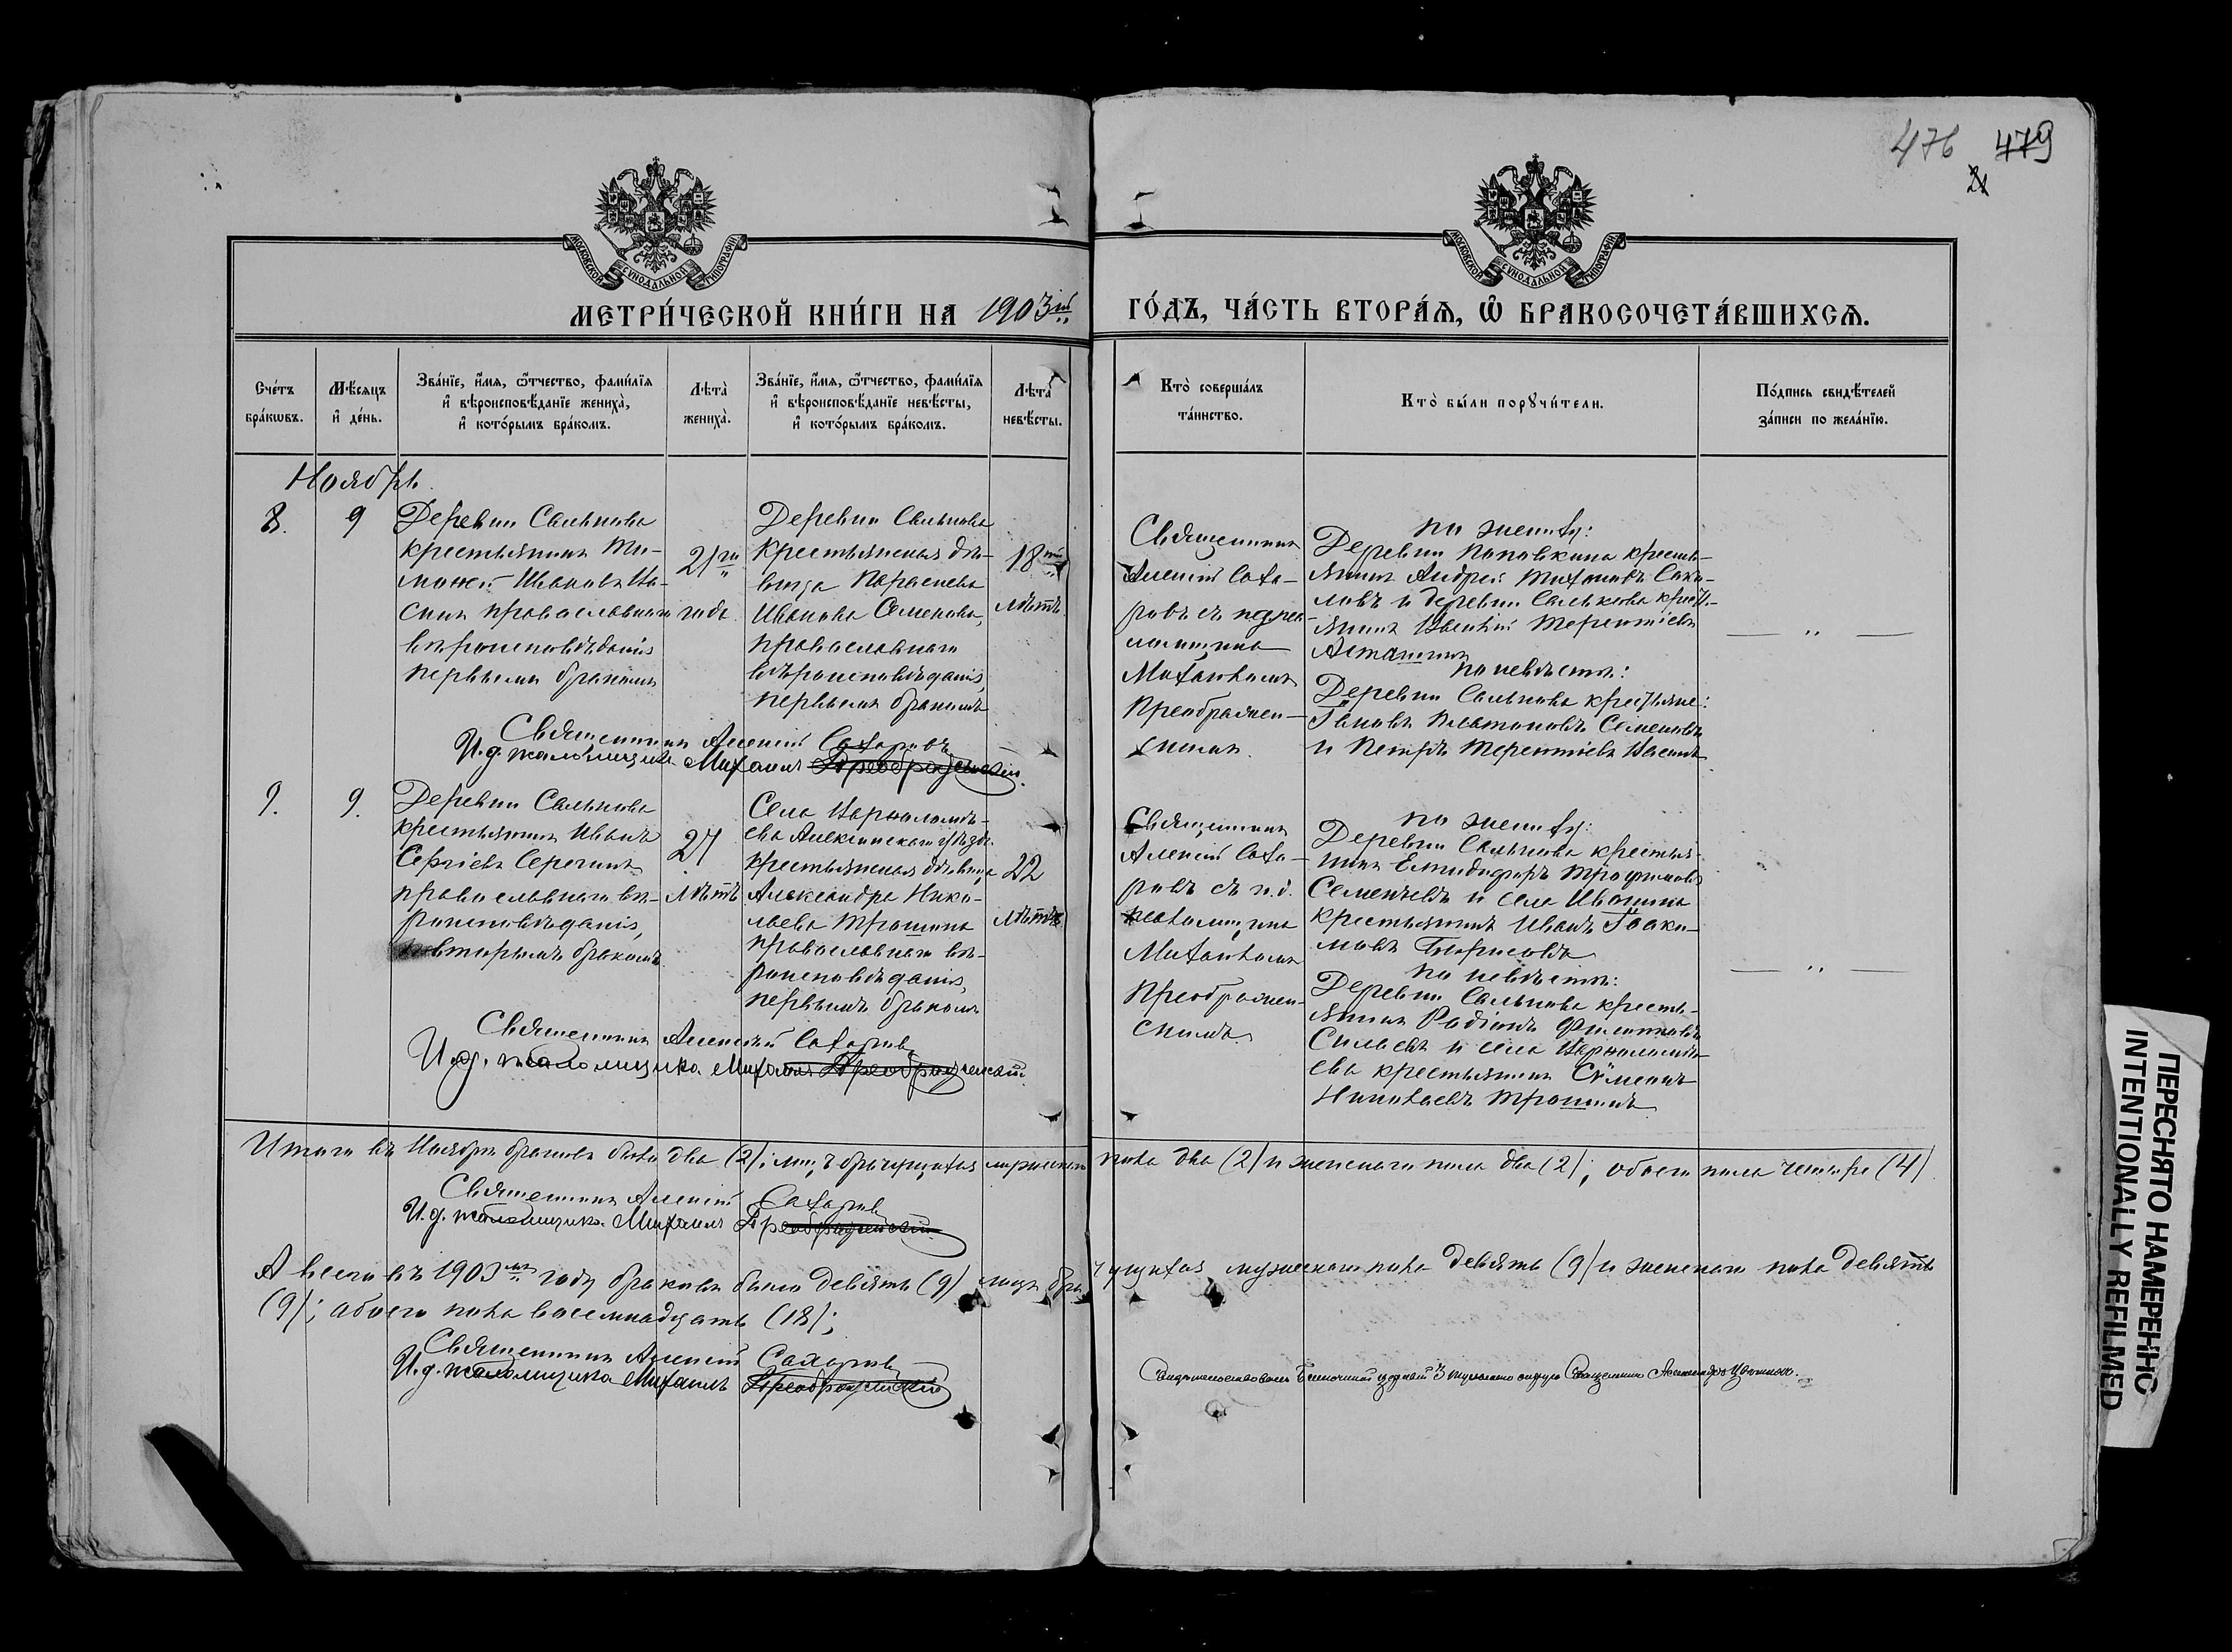 476 479
21
МОСКОВСКОЙ СѴНОДАЛЬНОЙ ТИПОГРАФІИ
МОСКОВСКОЙ СѴНОДАЛЬНОЙ ТИПОГРАФІИ
МЕТРИ́ЧЕСКОЙ КНИ́ГИ НА 1903й ГО́ДЪ, ЧА́СТЬ ВТОРА́Ѧ, Ѽ БРАКОСОЧЕТА́ВШИХСѦ.
Сче́тъ
бра́кѡвъ.
Мѣ́сяцъ
и҆ де́нь.
Зва́нїе, и҆́мѧ, ѻ҆́тчество, фами́лїѧ
и҆ вѣроисповѣ́данїе жениха̀,
и҆ кото́рымъ бра́комъ.
Лѣ́та
жениха̀.
Зва́нїе, и҆́мѧ, ѻ҆́тчество, фами́лїѧ
и҆ вѣроисповѣ́данїе невѣ́сты,
и҆ кото́рымъ бра́комъ.
Лѣ́та
невѣ́сты.
Кто̀ соверша́лъ
та́инство.
Кто̀ бы́ли порꙋчи́тели.
По́дпись свидѣ́телей
за́писи по жела́нїю.
Ноябрь.
8.
9
Деревни Салькова
крестьянинъ Ти-
моѳей Ивановъ
православнаго
вѣроисповѣданія
первымъ бракомъ
21го
года.
Деревни Салькова
крестьянская дѣ-
вица Параскева
Иванова Семенова,
православнаго
вѣроисповѣданія,
первымъ бракомъ
18ть
лѣтъ.
Священникъ
Алексій Саха-
ровъ съ
Михаиломъ
Преображен-
скимъ
по женихѣ:
Деревни Поповкина кресть-
янинъ Андрей Тихоновъ
и деревни Салькова крест-
янинъ Терентіевъ
по невѣстѣ:
Деревни Салькова крестьяне:
Іаковъ Платоновъ Семеновъ
и Петръ Терентіевъ
— " —
Священникъ Алексій Сахаровъ
И.д. псаломщика Михаилъ Преображенскій.
9.
9.
Деревни Салькова
крестьянинъ Иванъ
Сергіевъ Серегинъ
православнаго вѣ-
роисповѣданія,
вторымъ бракомъ.
27
лѣтъ
Села Варѳоломѣ-
ева Алексинскаго уѣзда
крестьянская дѣвица
Александра Нико-
лаева Трошина
православнаго вѣ-
роисповѣданія,
первымъ бракомъ
22
лѣтъ
Священникъ
Алексій Саха-
ровъ съ и.д.
псаломщика
Михаиломъ
Преображен-
скимъ
по женихѣ:
Деревни Салькова крестья-
нинъ Елпидифоръ Трофимовъ
и села Ивашина
крестьянинъ Иванъ Іоаки-
мовъ Борисовъ
по невѣстѣ:
Деревни Салькова кресть-
янинъ Родіонъ Филипповъ
и села Варѳоломѣ-
ева крестьянинъ Сѵмеонъ
Николаевъ Трошинъ
— " —
Священникъ Алексій Сахаровъ
И.д. псаломщика Михаилъ Преображенскій.
Итого въ Ноябрѣ браковъ было два (2); лицъ брачущихся мужескаго пола два (2) и женскаго пола два (2); обоего пола четыре (4)
Священникъ Алексій Сахаровъ
И.д. псаломщика Михаилъ Преображенскій.
А всего въ 1903мъ году браковъ было девять (9) лицъ брачущихся мужескаго пола девять (9) и женскаго пола девять
(9); обоего пола восемнадцать (18);
Священникъ Алексій Сахаровъ
И.д. псаломщика Михаилъ Преображенскій
Свидѣтельствовалъ Благочинный церквей 3 округа Священникъ Александръ
ПЕРЕСНЯТО НАМЕРЕННО
INTENTIONALLY REFILMED